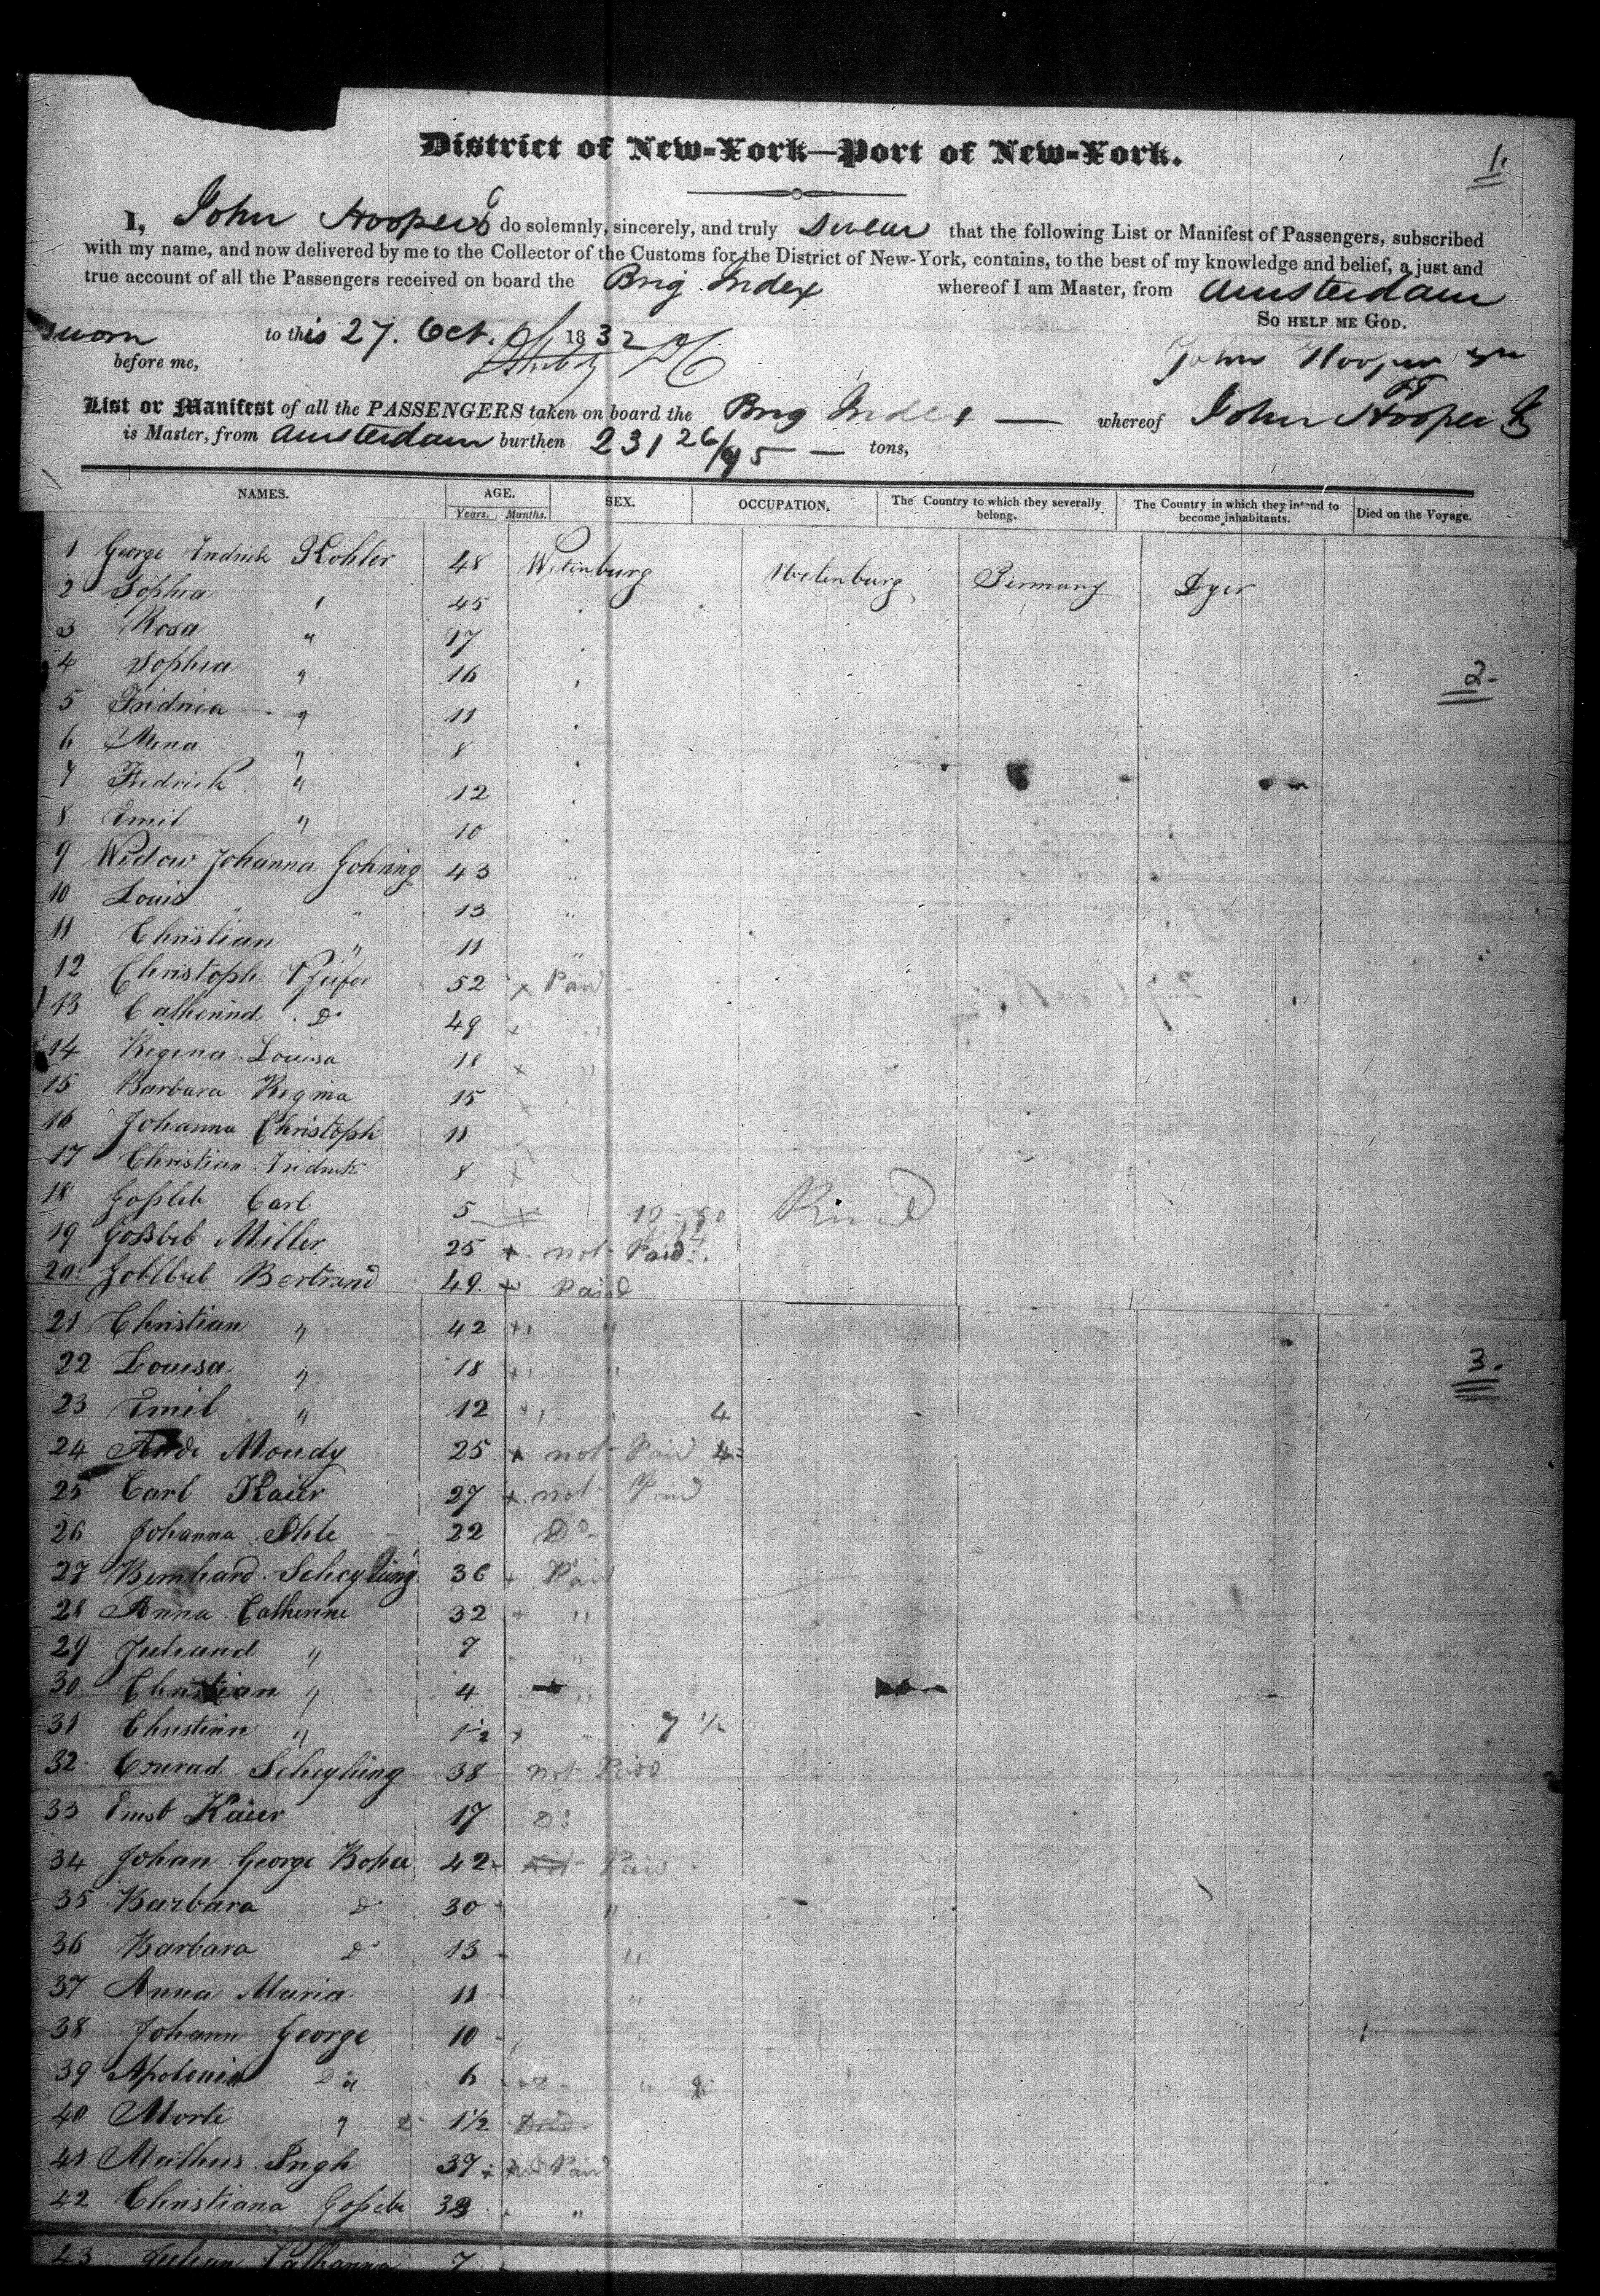 District of New-York—Port of New-York.
1.
I, John Hooper do solemnly, sincerely, and truly swear that the following List or Manifest of Passengers, subscribed
with my name, and now delivered by me to the Collector of the Customs for the District of New-York, contains, to the best of my knowledge and belief, a just and
true account of all the Passengers received on board the Brig Index whereof I am Master, from Amsterdam
So help me God.
sworn to this 27. Oct. 1832
before me,
John Hooper
List or Manifest of all the PASSENGERS taken on board the Brig Index — whereof John Hooper Jr
is Master, from Amsterdam burthen 231 26/95 — tons,
NAMES. AGE. SEX. OCCUPATION. The Country to which they severally belong. The Country in which they intend to become inhabitants. Died on the Voyage.
Years. Months.
1 George Fredrick Kohler 48 Germany Dyer
2 Sophia " 45
3 Rosa " 17
4 Sophia " 16
2.
5 Fridrica " 11
6 Mena " 8
7 Fredrick " 12
8 Emil " 10
9 Widow Johanna Gohring 43 "
10 Louis " " 13 "
11 Christian " 11 "
12 Christoph Pfeifer 52 x Paid
13 Catherina Do 49 x "
14 Regina Louisa 18 x "
15 Barbara Regina 15 x
16 Johanna Christoph 11
17 Christian Fridrick 8 x
18 Carl 5 x 10-50
19 Miller 25 x not Paid
20 Bertrand 49 x Paid
21 Christian " 42 x "
22 Louisa " 18 x "
3.
23 Emil " 12 x " 4
24 Moudy 25 x not Paid 4
25 Carl Kaier 27 x not Paid
26 Johanna 22 Do
27 Bernhard Scheyhing 36 x Paid
28 Anna Catherine 32 "
29 " 7 "
30 Christian " 4 "
31 Christian " 1 1/2 x " 7 1/2
32 Conrad Scheyhing 38 not Paid
33 Ernst Kaier 17 Do
34 Johan George 42 x not Paid
35 Barbara Do 30 "
36 Barbara Do 13 "
37 Anna Maria 11 "
38 Johann George 10 "
39 Apolonia Do 6 "
40 " 1 1/2 Died
41 Mathus 37 x Paid
42 Christiana "
43 Catharina 7